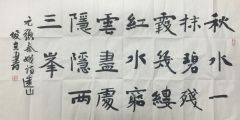 秋水一
抹碧殘
霞幾縷
紅水窮
雲盡處
隱隱兩
三峯
元張秦娥詩遠山